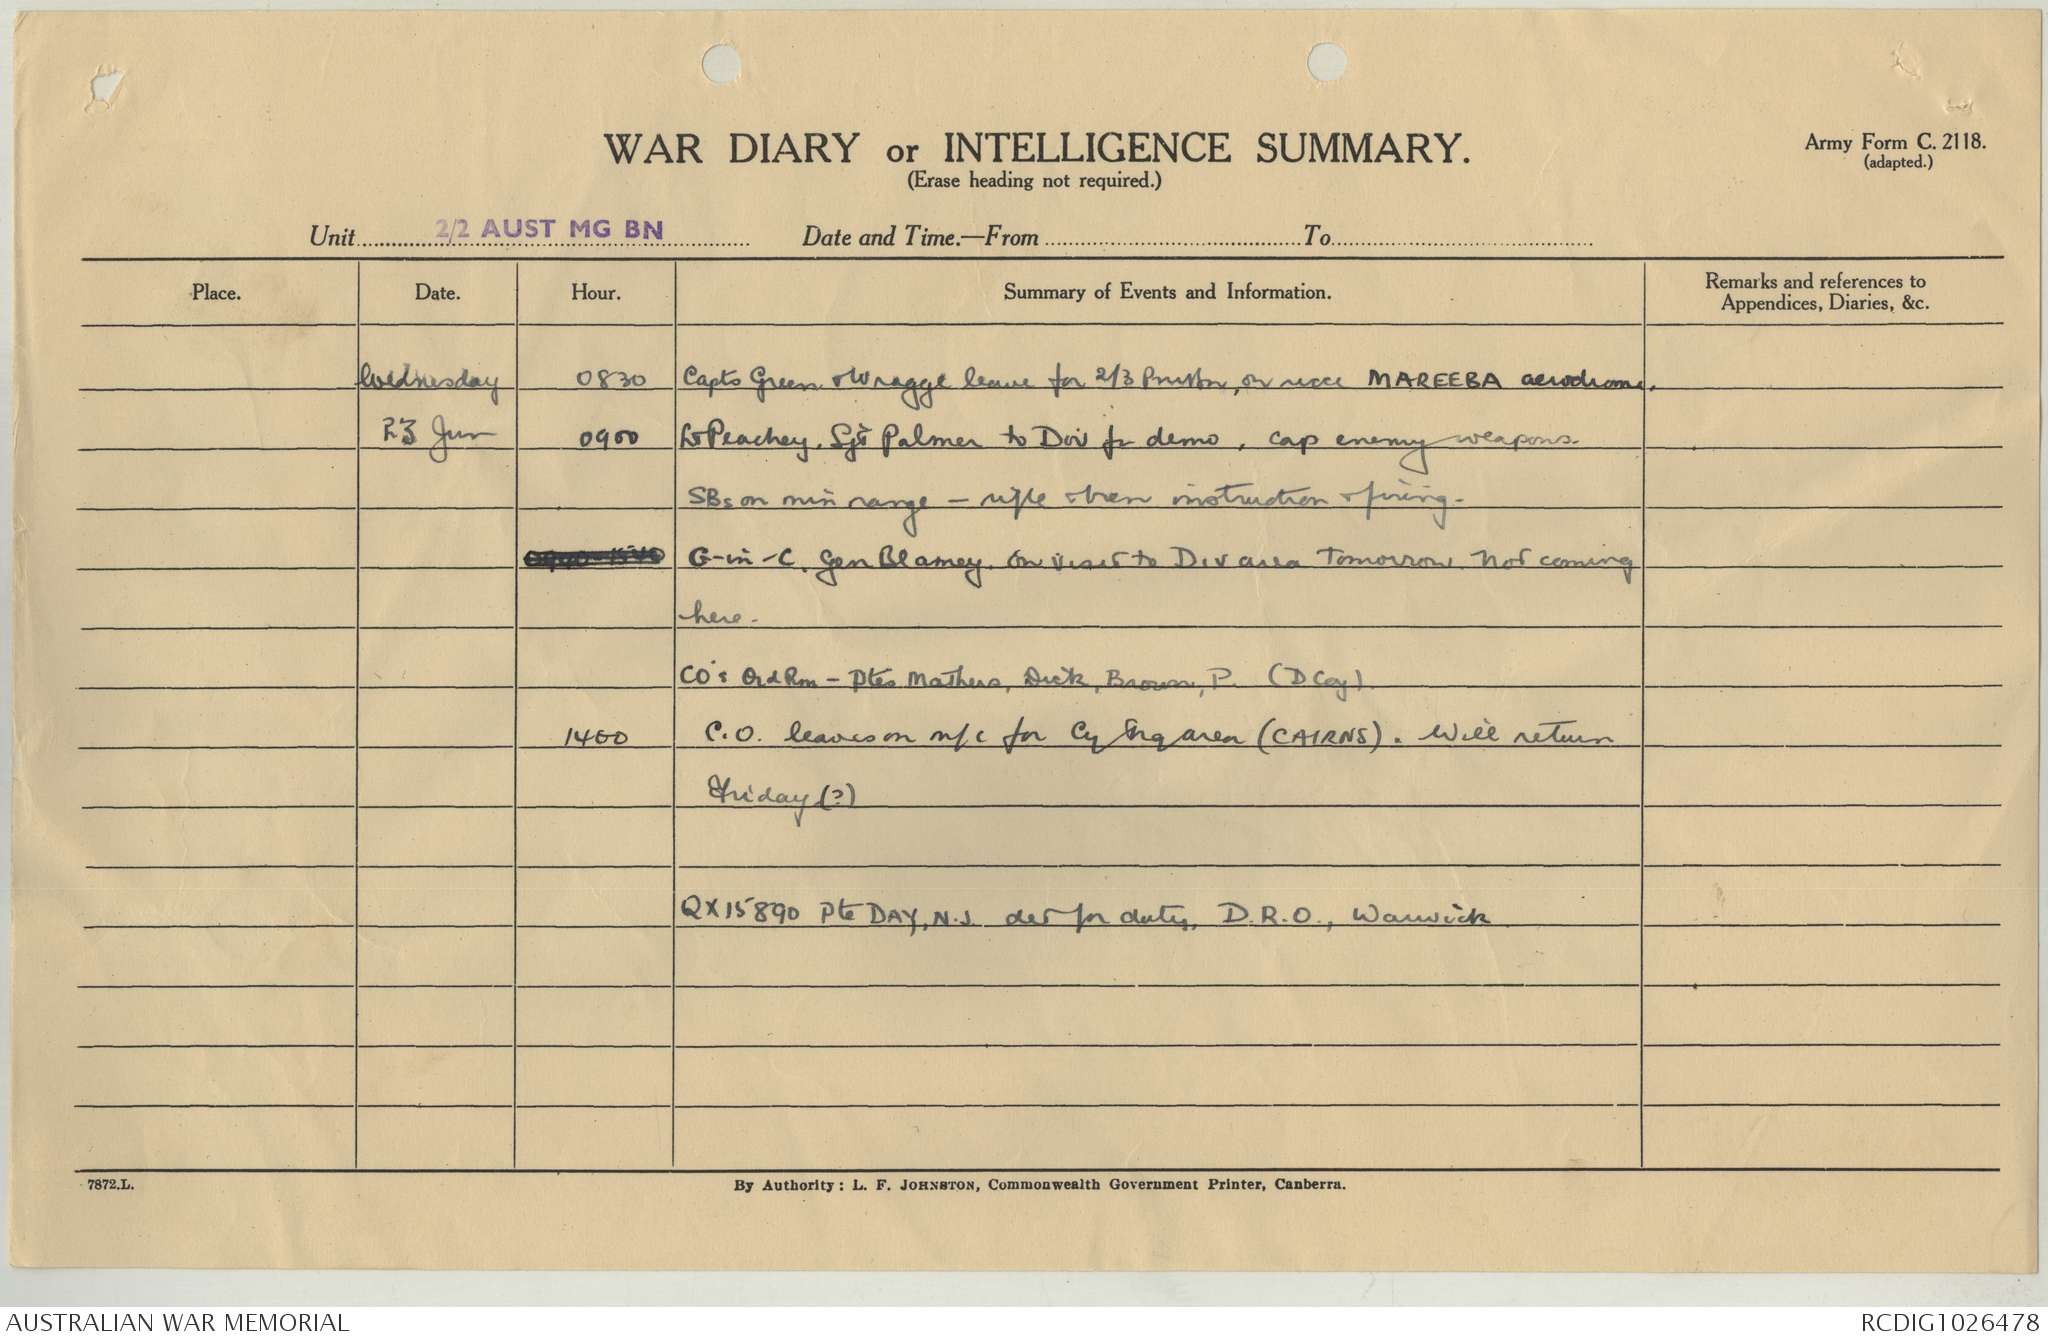 WAR DIARY or INTELLIGENCE SUMMARY.
(Erase heading not required.)
Army Form C. 2118.
(adapted.)
Unit 2/2 AUST MG BN Date and Time.—From To
Place. Date. Hour. Summary of Events and Information. Remarks and references to Appendices, Diaries, &c.
Wednesday 0830 Capts Green & Wragge leave for 2/3 Pnr Bn, on recce MAREEBA aerodrome.
23 Jun 0900 Lt Peachey, Sgt Palmer to Div for demo, cap enemy weapons.
SBs on min range — rifle & bren instruction & firing.
C-in-C, Gen Blamey, on visit to Div area tomorrow. Not coming
here.
CO's Ord Rm — Ptes Mathers, Dick, Brown, P. (D Coy)
1400 C.O. leaves on m/c for Cy trg area (CAIRNS). Will return
Friday (?)
QX15890 Pte DAY, N.J. det for duty, D.R.O., Warwick
7872.L.
By Authority: L. F. JOHNSTON, Commonwealth Government Printer, Canberra.
AUSTRALIAN WAR MEMORIAL
RCDIG1026478